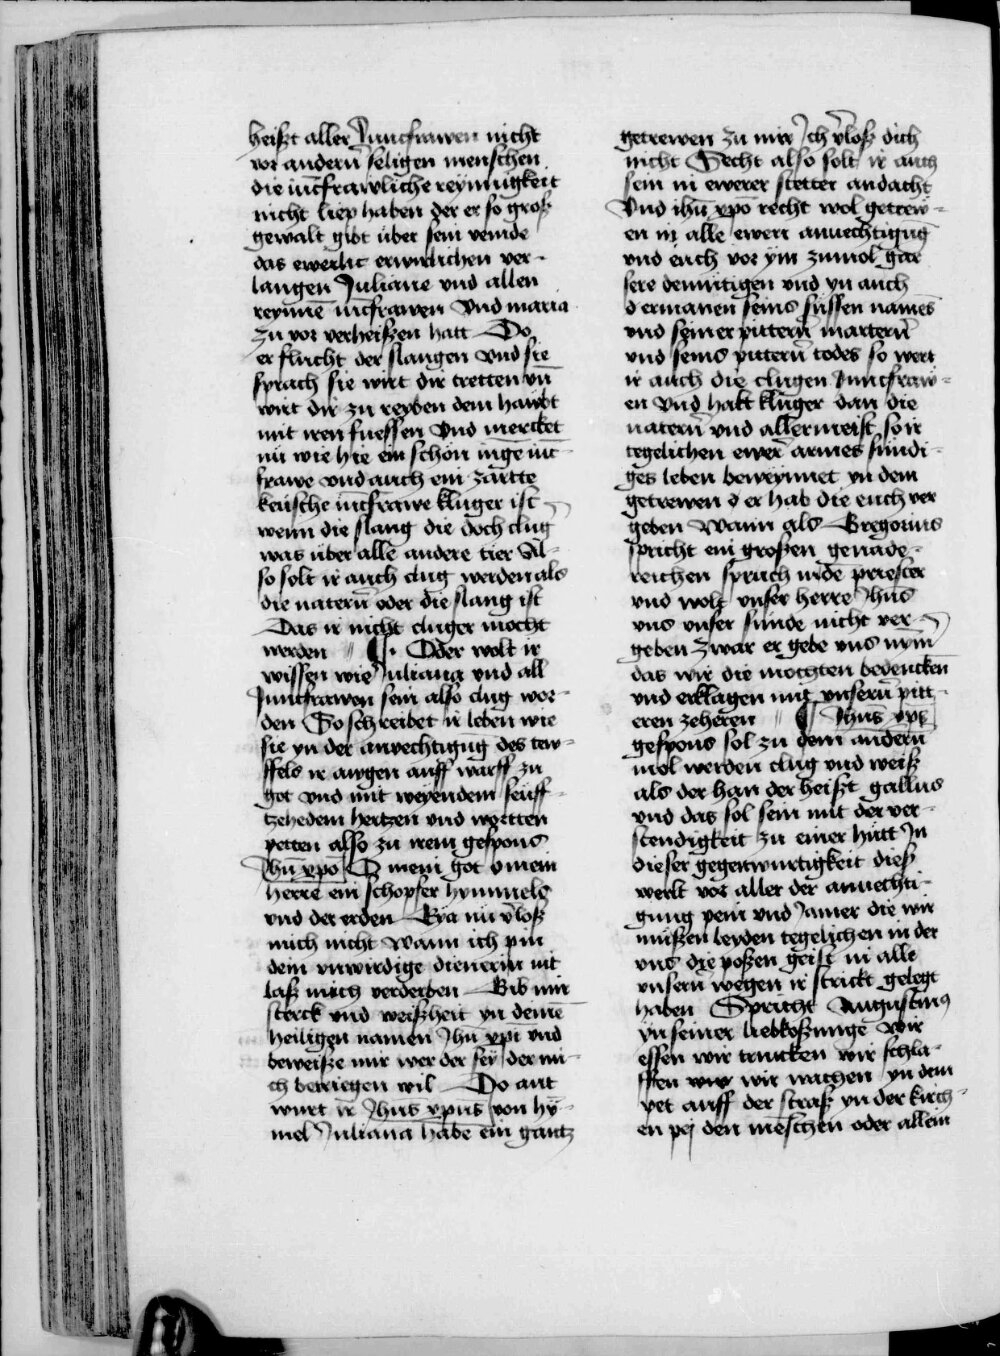 heiszt aller Junckfrawen nicht
vor andern̄ seligen menschen
die iūcfrawliche reynnigkeit
nicht liep haben der er so grosz
gewalt gibt über sein veinde
das ewerlic erwirlichen ver-
langen Juliane vnd allen
reynnē iūcfrawen Vnd maria
zu vor verheiszen hatt Do
er flucht der slangen vnd sie
sprach sie wirt dir tretten vn̄
wirt dir zu reyben dem hawbt
mit iren fuessen Vnd mercket
nū wie hie ein schon iūge iūc
frawe vnd auch ein zartte
keusche iūcfrawe kluger ist
wenn die slang die doch clug
was über alle andere tier Al-
so solt ir auch clug werden als
die natern̄ oder die slang ist
Das ir nicht cluger mocht
werden ¶ Oder wolt ir
wissen wie Juliana vnd all
Junckfrawen sein also clug wor-
den So schreibet ir leben wie
sie yn der anvechtigūg des tew-
ffels ir awgen auff warff zu
got vnd mit weyendem seuff-
tzehedem hertzen vnd wortten
petten also zu irem gespons
Jhū xpō O mein got o mein
herre ein schopfer hymmels
vnd der erden Eya nū v̄losz
mich nicht Wann ich pin
dein vnwirdige dienerin nit
lasz mich verderben Gib mir
sterck vnd weiszheit yn deinē
heiligen namen Jhū xpī vnd
beweisze mir wer der sey der mi-
ch betriegen wil Do ant
wurt ir Jhūs xpūs von hȳ-
mel Juliana habe ein gantz
getrewen zu mir Ich v̄losz dich
nicht Secht also solt ir auch
sein in ewerer stetter andacht
Vnd ihū xpō recht wol getrew-
en in alle ewerr anuechtigūg
vnd euch vor ym zumol gar
sere demutigen vnd yn auch
d ermanen seins sussen namēs
vnd seiner pittern̄ martern̄
vnd seins pittern̄ todes so wert
ir auch die clugen Junckfraw-
en Vnd halt kluger dan die
natern̄ vnd allermeist so ir
tegelichen ewer̄ armes sundi-
ges leben beweynnet yn dem
getrewen d er hab die euch ver
geben Wann als Gregorius
spricht ein groszen genade-
reichen spruch in dē priester
vnd wolt vnser herre Jhūs
vns vnser sunde nicht ver-
geben zwar er gebe vns nym̄
das wir die mochten bedencken
vnd erklagen mit vnsern̄ pitt-
eren zeheren ¶ Jhūs xps̄
gespons sol zu dem andern̄
mol werden clug vnd weisz
als der han der heiszt gallus
vnd das sol sein mit der ver-
stendigkeit zu einer hutt Jn
dieser gegenwurtigkeit diesz
werlt vor aller der anuechti-
gung pein vnd Jamer die wir
muszen leyden tegelichen in der
vns die poszen geist in alle
vnsern̄ wegen ir strickt gelegt
haben Spricht Augustinꝰ
yn seiner liebkoszunge Wir
essen wir trincken wir schla-
ffen wir wachen yn dem
pet auff der strasz yn der kirch-
en pej den mēschen oder allein